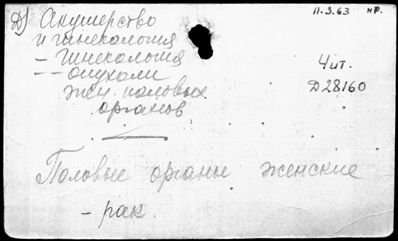 Д) Акушерство 11.3.63 нг.
и гинекология
— Гинекология
— — опухоли
жен. половых
органов
4 ит.
Д28160
Половые органы женские
— рак.